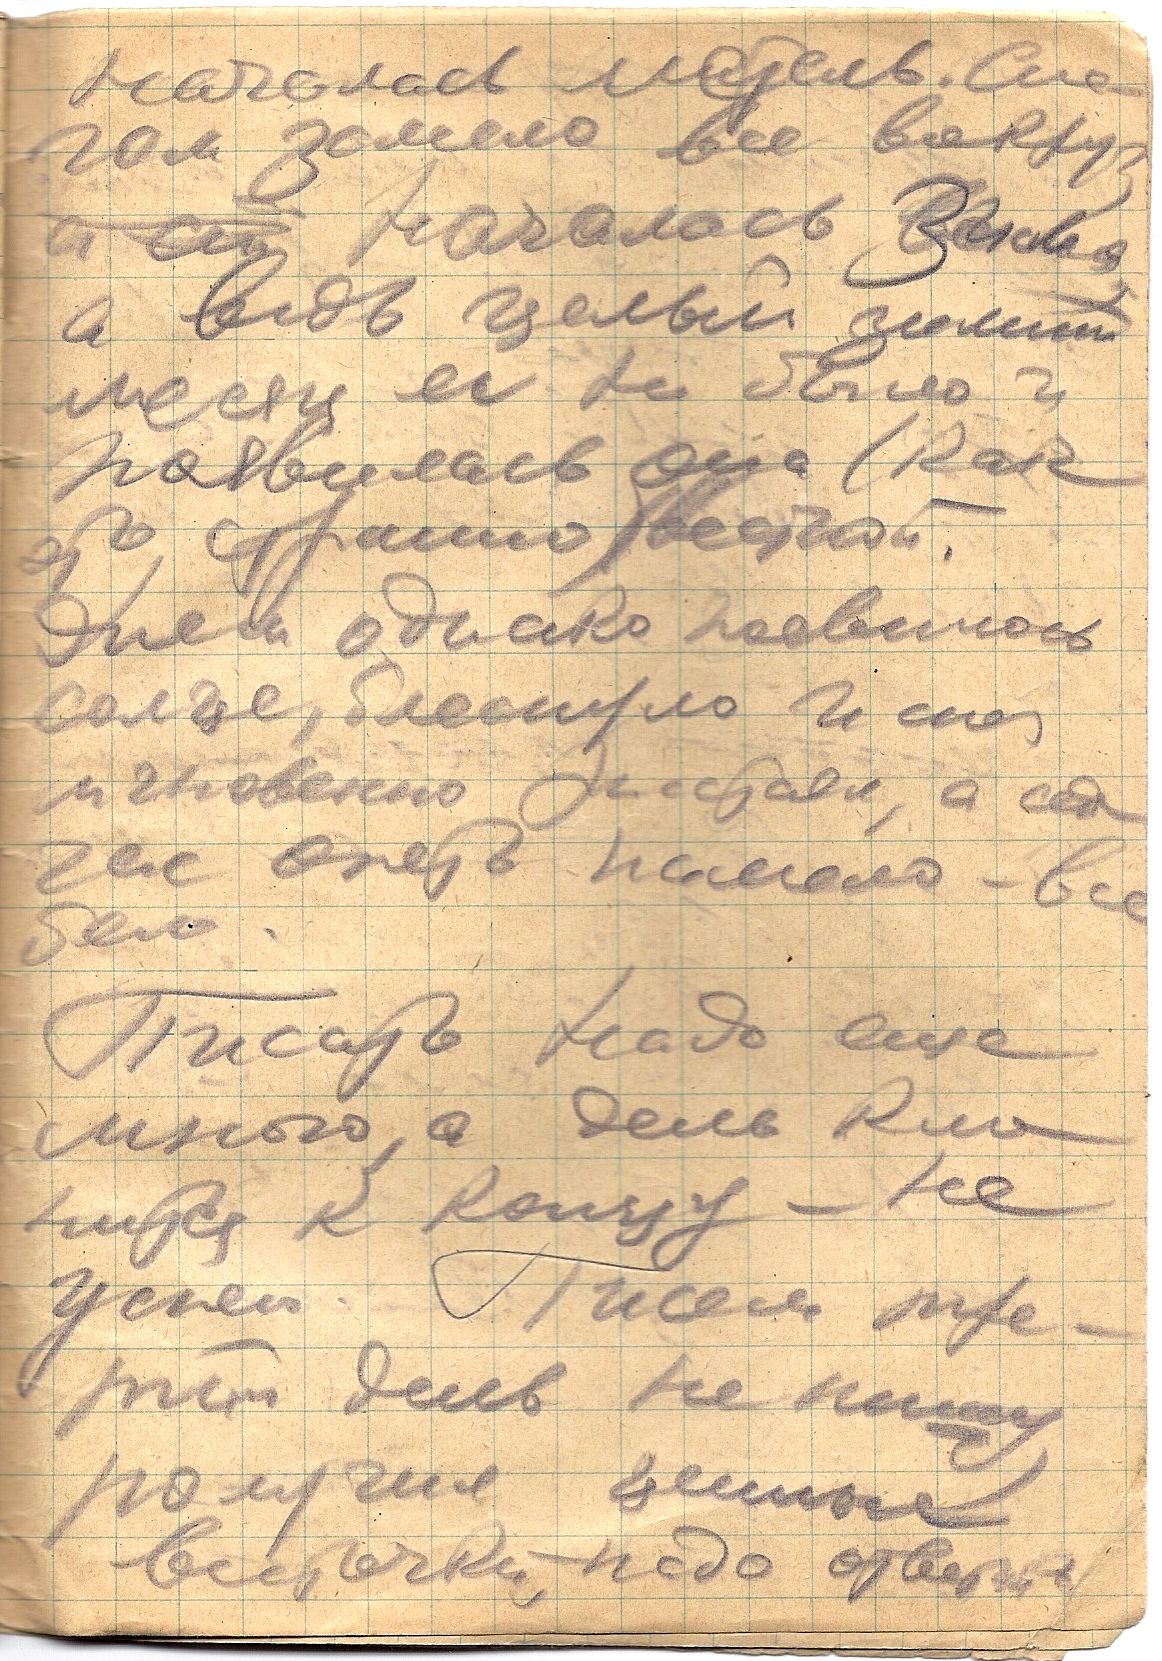 началась мятель. Сне-
гом замело все вокруг
а началась Зима,
а ведь целый зимний
месяц ея не было и
появилась она (как
это странно) весной.
Днем однако появилось
солце, блеснуло и снег
мгновенно растаял, а сей
час опять намело - все
бело.
Писать надо еще
много, а день кло
нится к концу - не
успею. Писем тре-
тий день не пишу
получил ценные
весточки, надо ответить